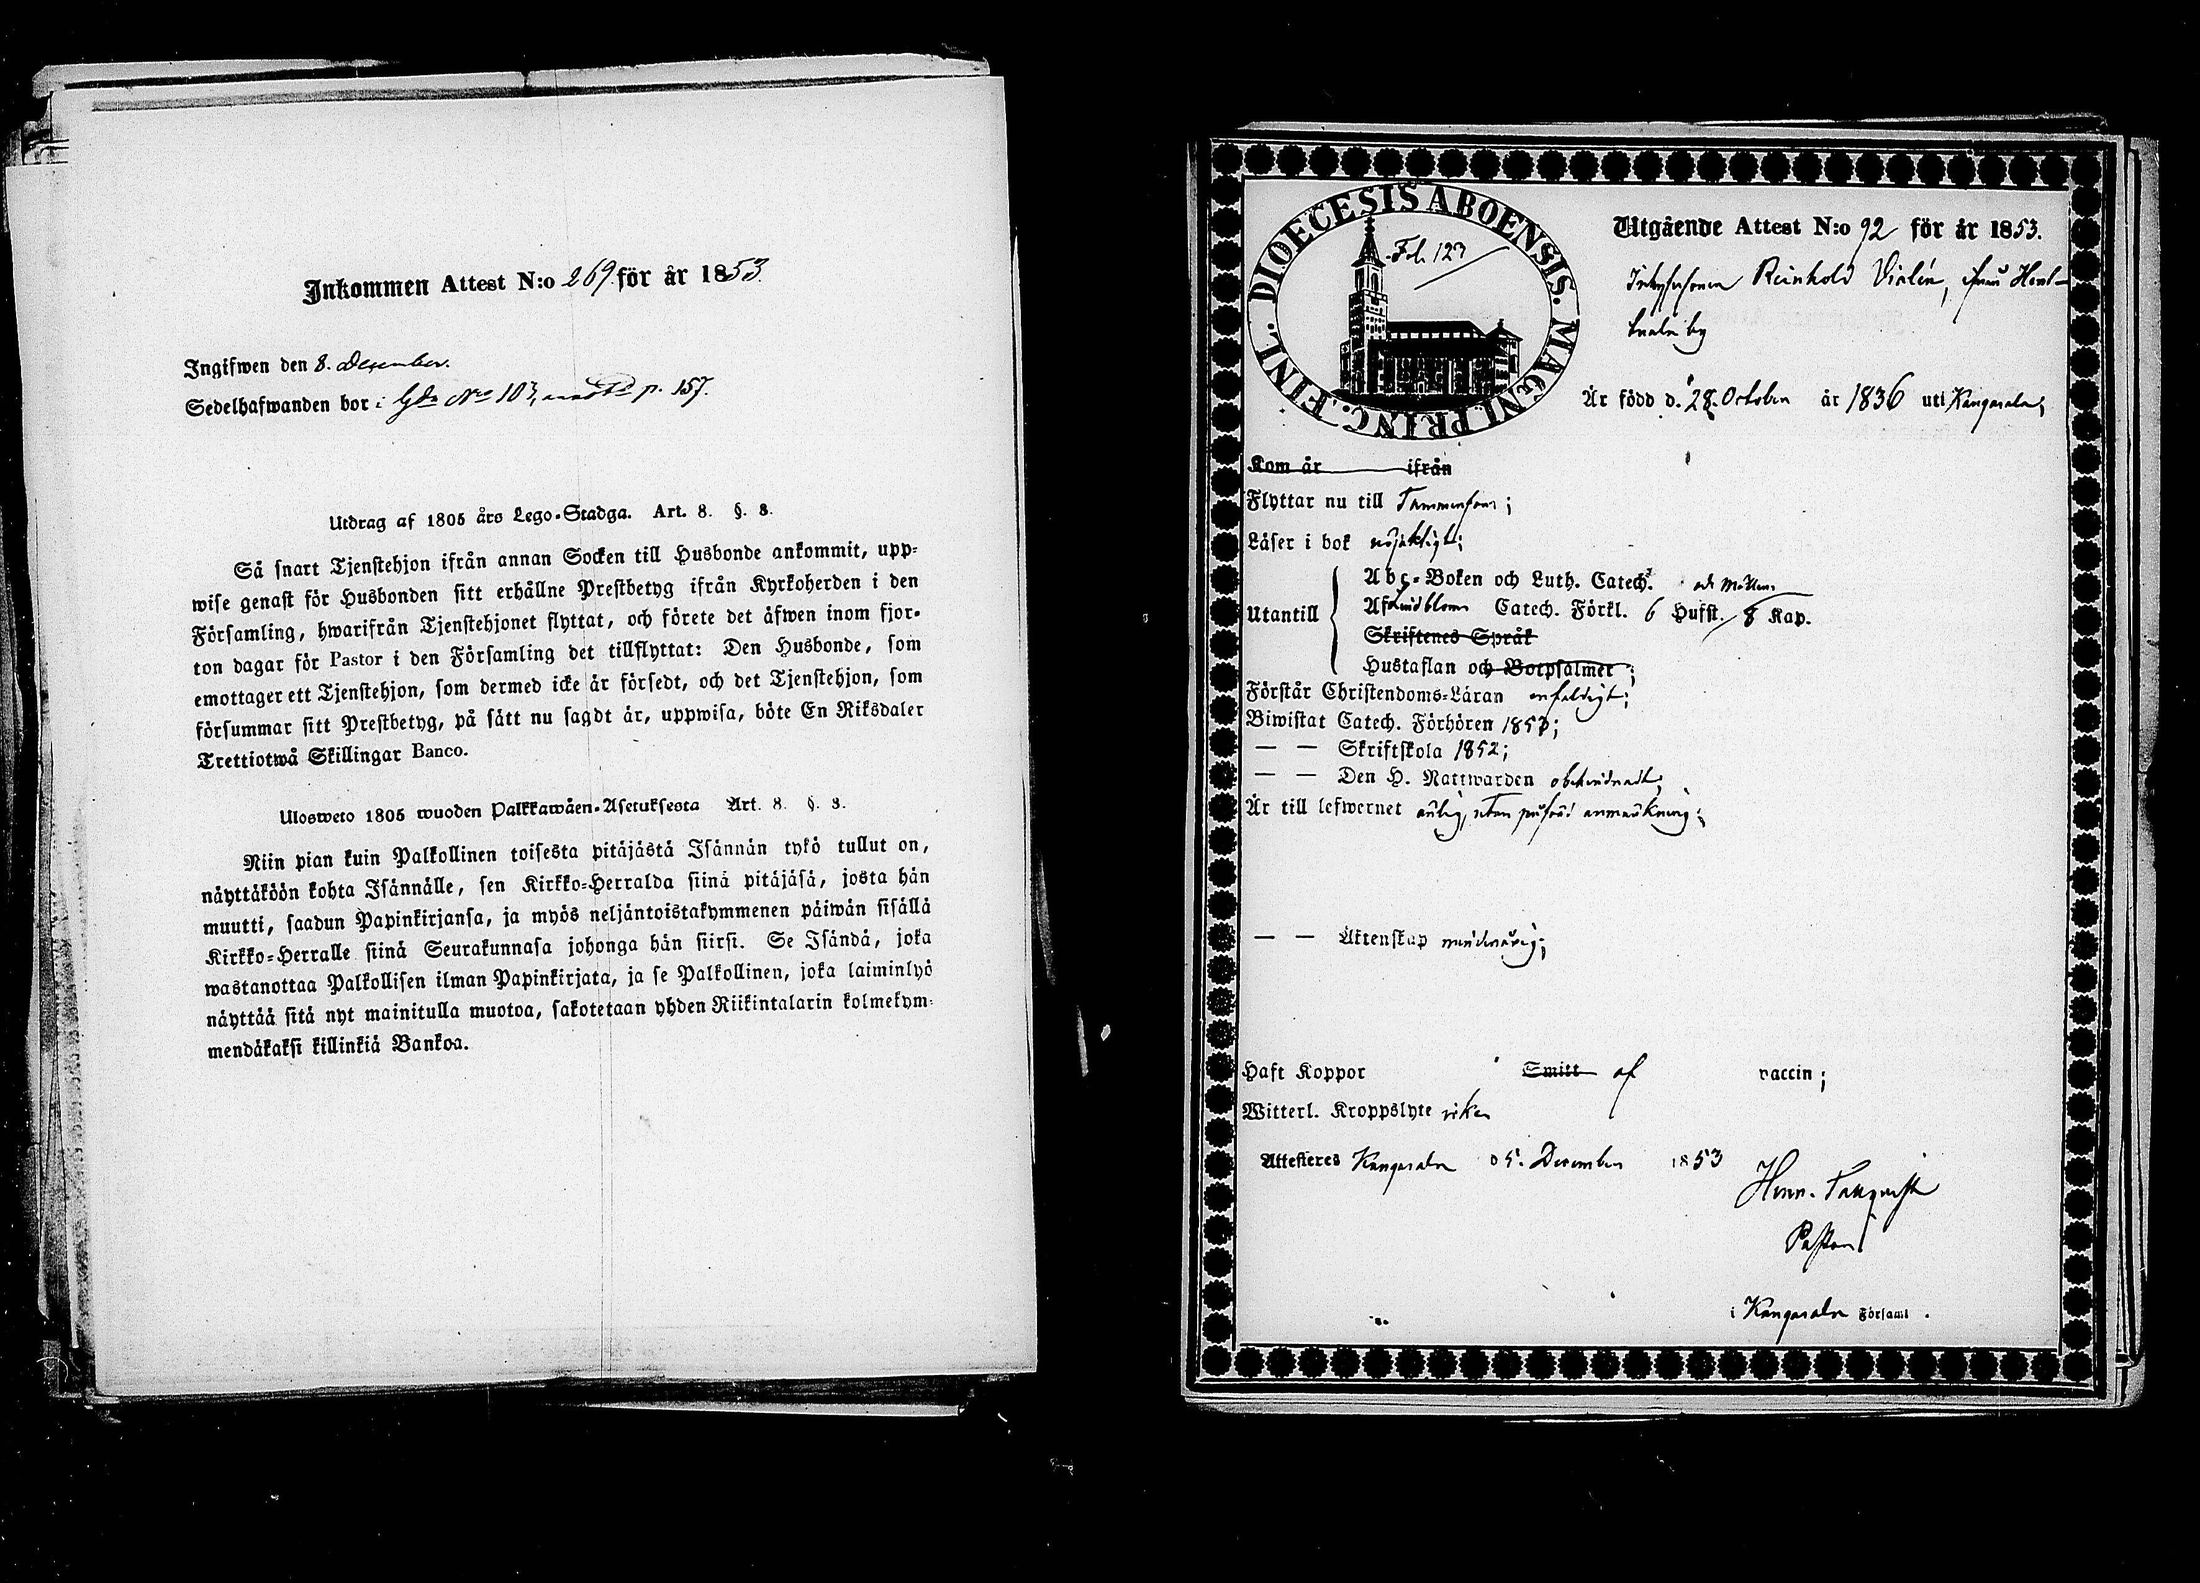 Inkommen Attest N:o 269. för år 1853.
Ingifwen den 8. December.
Sedelhafwanden bor i Gdn No 103, p. 157.
Utdrag af 1805 års Lego-Stadga. Art. 8. §. 8.
Så snart Tjenstehjon ifrån annan Socken till Husbonde ankommit, upp-
wise genast för Husbonden sitt erhållne Prestbetyg ifrån Kyrkoherden i den
Församling, hwarifrån Tjenstehjonet flyttat, och förete det äfwen inom fjor-
ton dagar för Pastor i den Församling det tillflyttat: Den Husbonde, som
emottager ett Tjenstehjon, som dermed icke är försedt, och det Tjenstehjon, som
försummar sitt Prestbetyg, på sätt nu sagdt är, uppwisa, böte En Riksdaler
Trettiotwå Skillingar Banco.
Ulosweto 1805 wuoden Palkkawäen-Asetuksesta Art. 8. §. 8.
Niin pian kuin Palkollinen toisesta pitäjästä Isännän tykö tullut on,
näyttäköön kohta Isännälle, sen Kirkko-Herralda siinä pitäjäsä, josta hän
muutti, saadun Papinkirjansa, ja myös neljäntoistakymmenen päiwän sisällä
Kirkko-Herralle siinä Seurakunnasa johonga hän siirsi. Se Isändä, joka
wastanottaa Palkollisen ilman Papinkirjata, ja se Palkollinen, joka laiminlyö
näyttää sitä nyt mainitulla muotoa, sakotetaan yhden Riikintalarin kolmekym-
mendäkaksi killinkiä Bankoa.
DIOECESIS ABOENSIS. MAGNI. PRINC. FINL.
Fol. 127
Utgående Attest N:o 92 för år 1853.
Reinhold Virlén, ifrån
by
Är född d. 28. October år 1836 uti Kangasala;
Kom år ifrån
Flyttar nu till Tammerfors;
Läser i bok nöjaktigt;
Utantill
Abc-Boken och Luth. Catech.
Af Lindbloms Catech. Förkl. 6 Hufst. 8 Kap.
Skriftenes Språk
Hustaflan och Botpsalmer;
Förstår Christendoms-Läran enfaldigt;
Biwistat Catech. Förhören 1853;
— — Skriftskola 1852;
— — Den H. Nattwarden obehindradt;
Är till lefwernet ärlig, utan påförd anmärkning;
— — Äktenskap minderårig;
Haft Koppor Smitt af vaccin;
Witterl. Kroppslyte
Attesteres Kangasala d 5. December 1853
Henr.
Pastor
i Kangasala Församl.